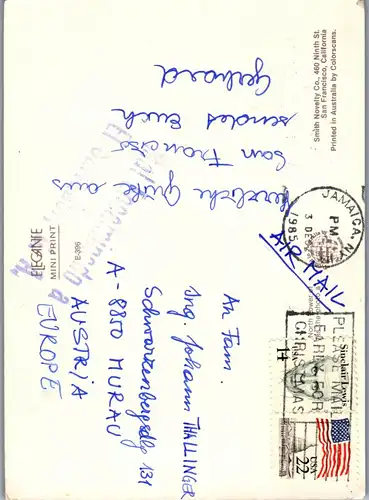 Herzliche Grüße aus
San Francisco
sendet Euch
Gerhard
ELEGANTE
MINI PRINT
E-396
Smith Novelty Co., 460 Ninth St.
San Francisco, California
Printed in Australia by Colorscans.
JAMAICA, N.Y.
PM
3 DEC
1985
AIR MAIL
PLEASE MAIL
EARLY FOR
CHRISTMAS
Sinclair Lewis
14
USA
22
An Fam.
Ing. Johann THALLINGER
Schwarzenbergsdlg 131
A-8850 MURAU
AUSTRIA
EUROPE